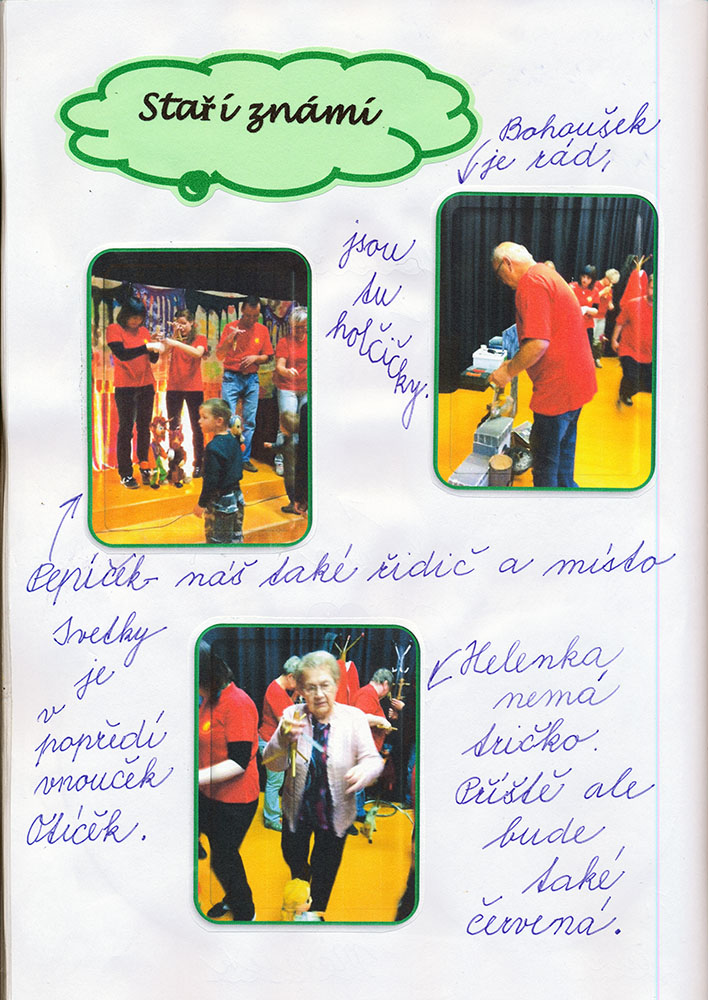 Staří známí
Bohoušek
je rád,
jsou
tu
holčičky.
Pepíček - náš také řidič a místo
Svetky
je
v
popředí
vnouček
Otíček.
Helenka
nemá
tričko.
Příště ale
bude
také
červená.